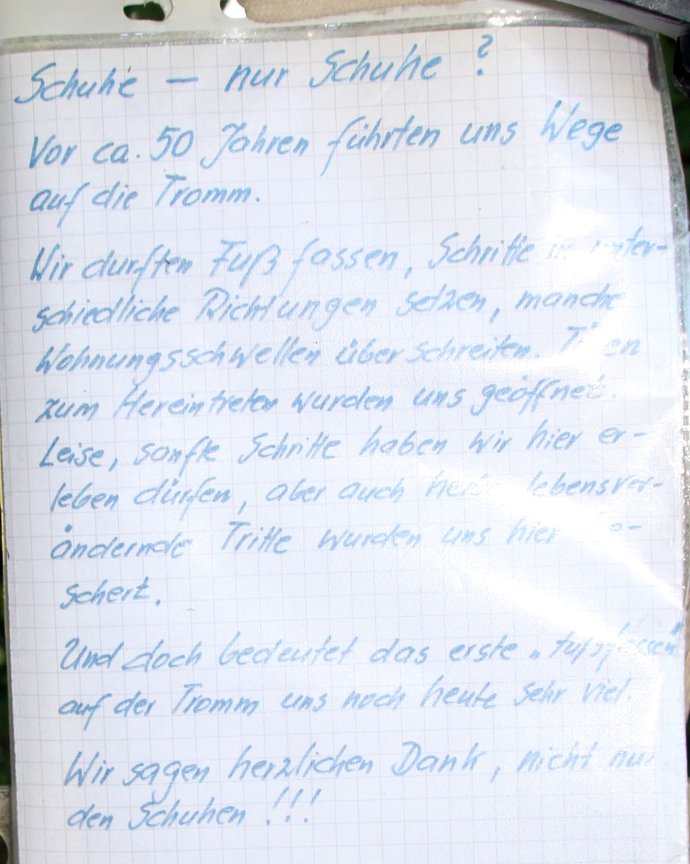 Schuhe — nur Schuhe ?
Vor ca. 50 Jahren führten uns Wege
auf die Tromm.
Wir durften Fuß fassen, Schritte in unter-
schiedliche Richtungen setzen, manche
Wohnungsschwellen überschreiten. Türen
zum Hereintreten wurden uns geöffnet.
Leise, sanfte Schritte haben wir hier er-
leben dürfen, aber auch lebensver-
ändernde Tritte wurden uns hier be-
schert.
Und doch bedeutet das erste „Fußfassen"
auf der Tromm uns noch heute sehr viel.
Wir sagen herzlichen Dank, nicht nur
den Schuhen !!!